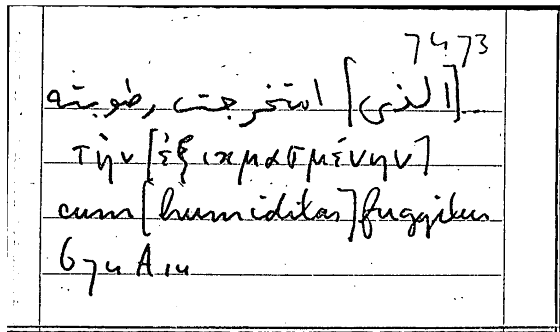 7473
...[الذى] استخرجت رطوبته
τὴν [ἐξικμασμένην]
cum [humiditas]
674 A 14